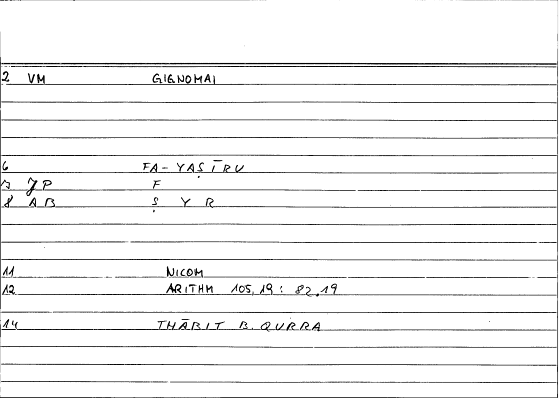 2 VM GIGNOMAI
6 FA-YAṢĪRU
7 JP F
8 AB Ṣ Y R
11 NICOM
12 ARITHM 105,19: 82,19
14 THĀBIT B. QURRA